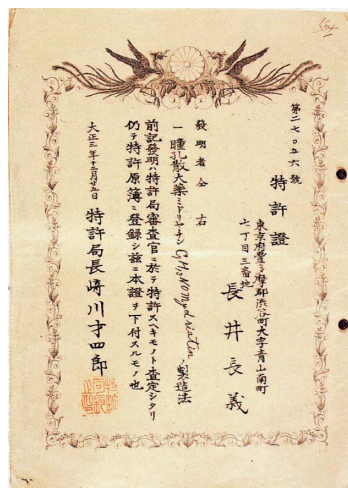 第二七〇五六號
特許證
東京府豐多摩郡渋谷町大字青山南町
七丁目三番地
長井長義
發明者 仝 右
一瞳孔散大薬ミドリヤチン Mydriatin ノ製造法
前記發明ハ特許局審査官ニ於テ特許スヘキモノト査定シタリ
仍テ特許原簿ニ登録シ茲ニ本證ヲ下付スルモノ也
大正三年十二月廿五日
特許局長崎川才四郎